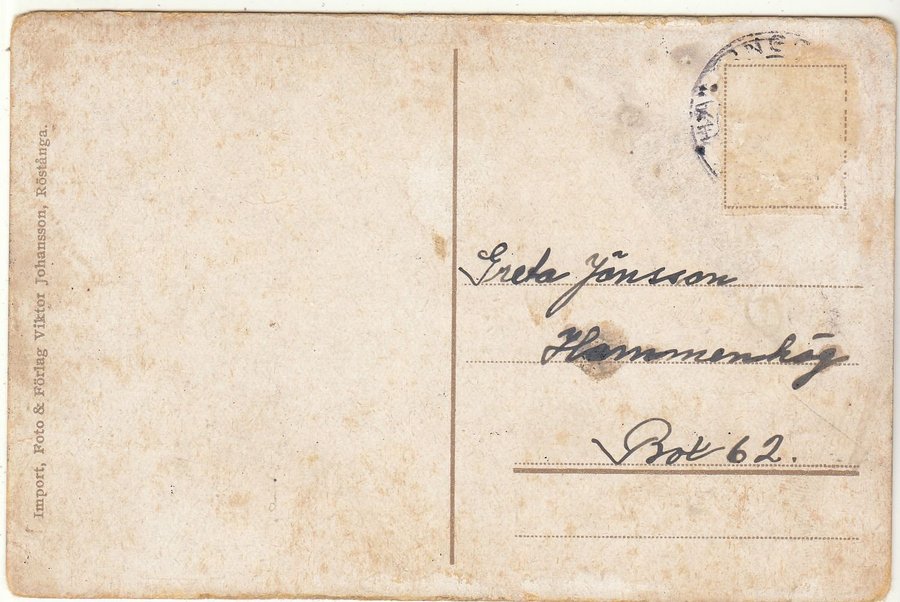 Import, Foto & Förlag Viktor Johansson, Röstånga.
Greta Jönsson
Hammenhög
Box 62.